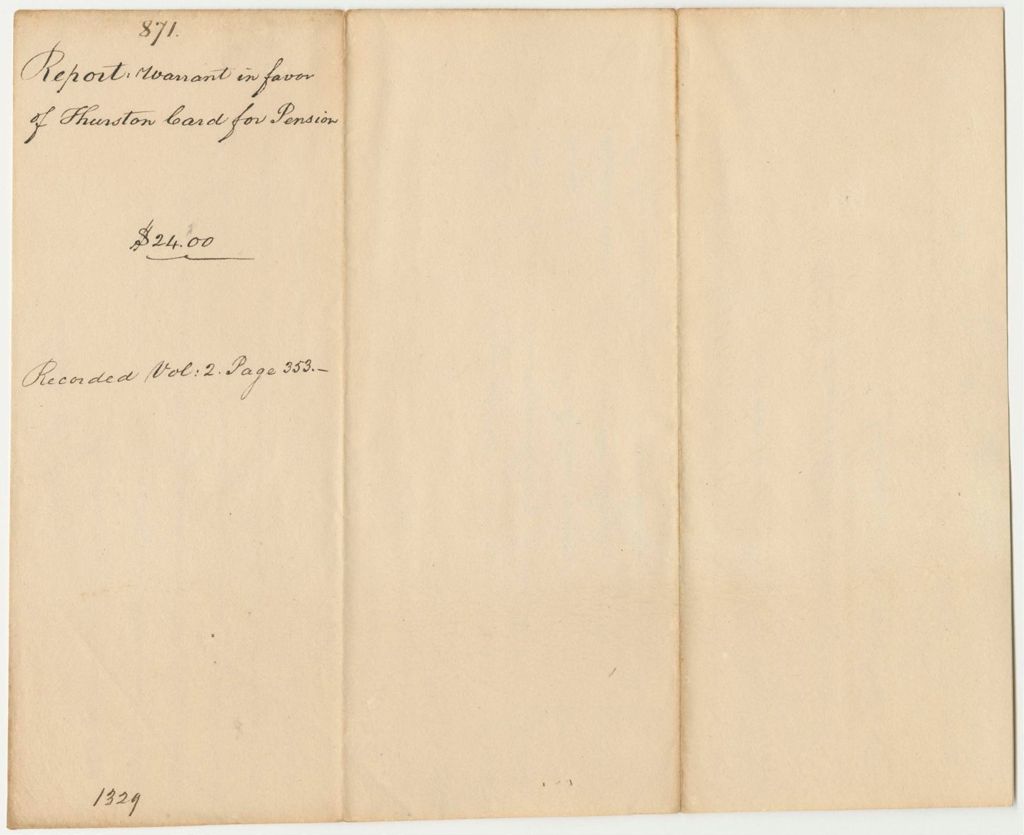 871.
Report: Warrant in favor
of Thurston Card for Pension
$24.00
Recorded Vol: 2. Page 353.—
1329